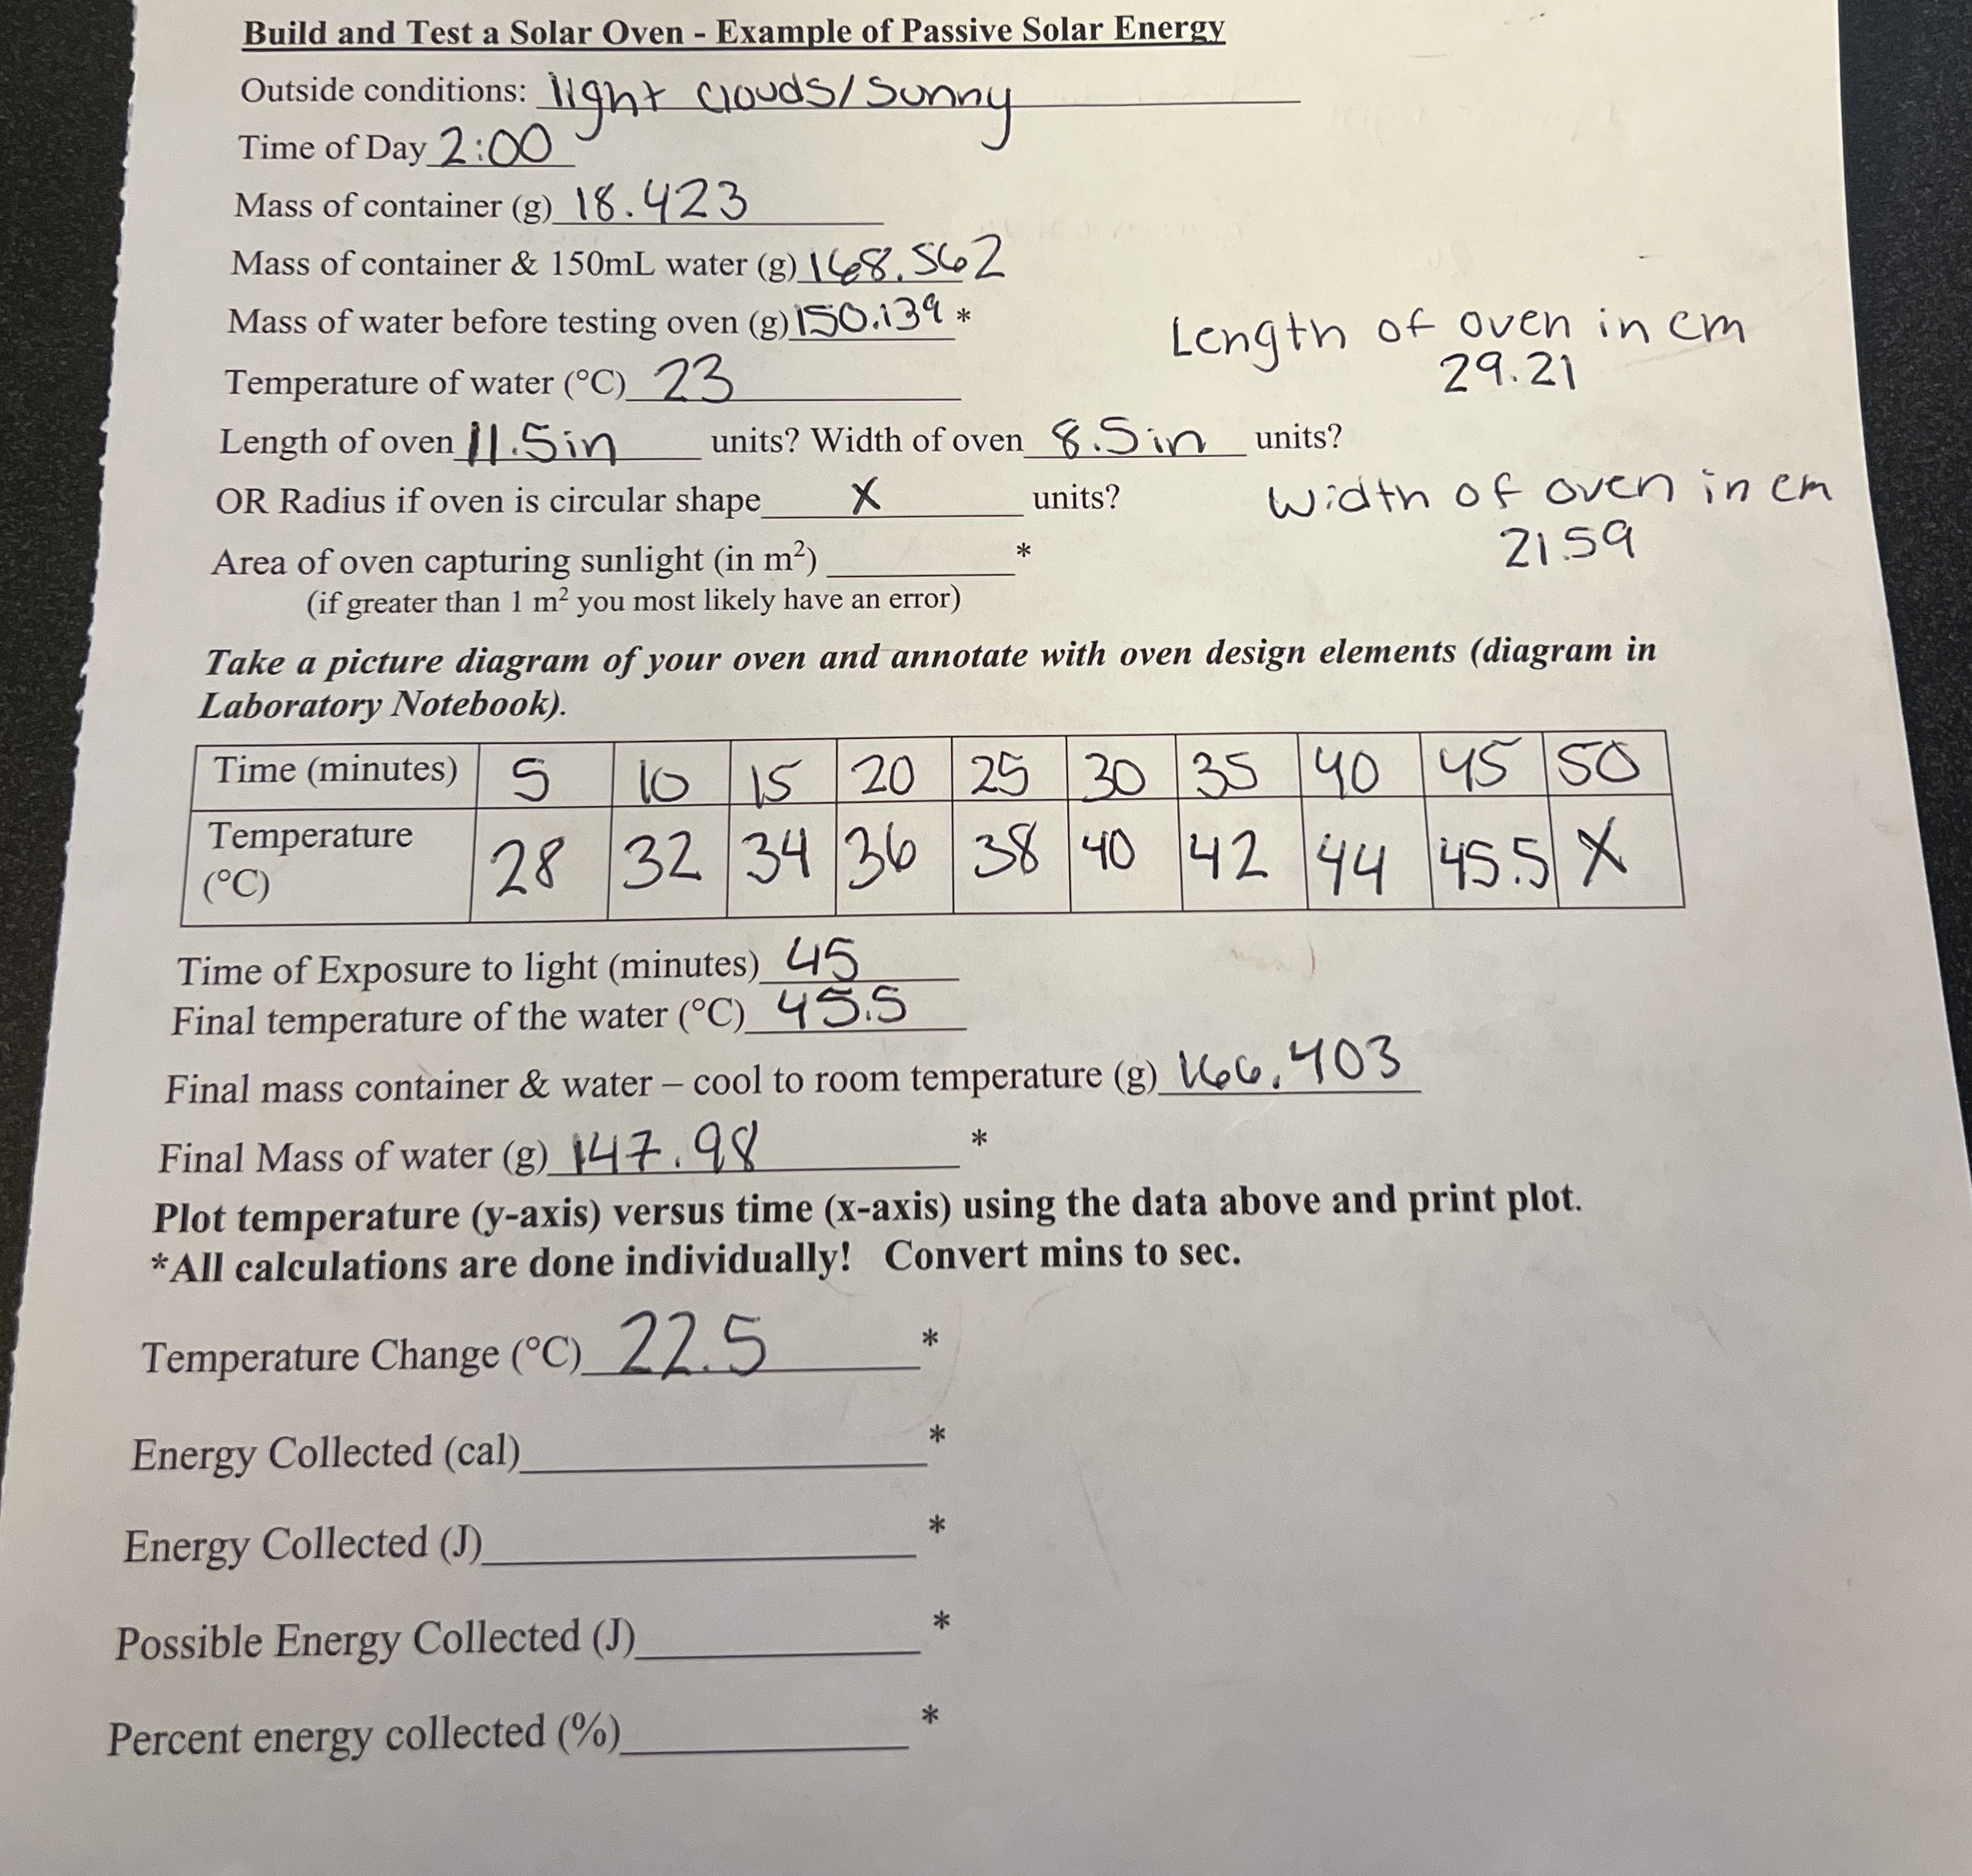 Build and Test a Solar Oven - Example of Passive Solar Energy
Outside conditions: light clouds/sunny
Time of Day 2:00
Mass of container (g) 18.423
Mass of container & 150mL water (g) 168.562
Mass of water before testing oven (g) 150.139 *
Length of oven in cm
29.21
Temperature of water (°C) 23
Length of oven 11.5in units? Width of oven 8.5in units?
OR Radius if oven is circular shape X units?
Width of oven in cm
21.59
Area of oven capturing sunlight (in m²) *
(if greater than 1 m² you most likely have an error)
Take a picture diagram of your oven and annotate with oven design elements (diagram in
Laboratory Notebook).
Time (minutes) 5 10 15 20 25 30 35 40 45 50
Temperature (°C) 28 32 34 36 38 40 42 44 45.5 X
Time of Exposure to light (minutes) 45
Final temperature of the water (°C) 45.5
Final mass container & water – cool to room temperature (g) 166.403
Final Mass of water (g) 147.98 *
Plot temperature (y-axis) versus time (x-axis) using the data above and print plot.
*All calculations are done individually! Convert mins to sec.
Temperature Change (°C) 22.5 *
Energy Collected (cal) *
Energy Collected (J) *
Possible Energy Collected (J) *
Percent energy collected (%) *